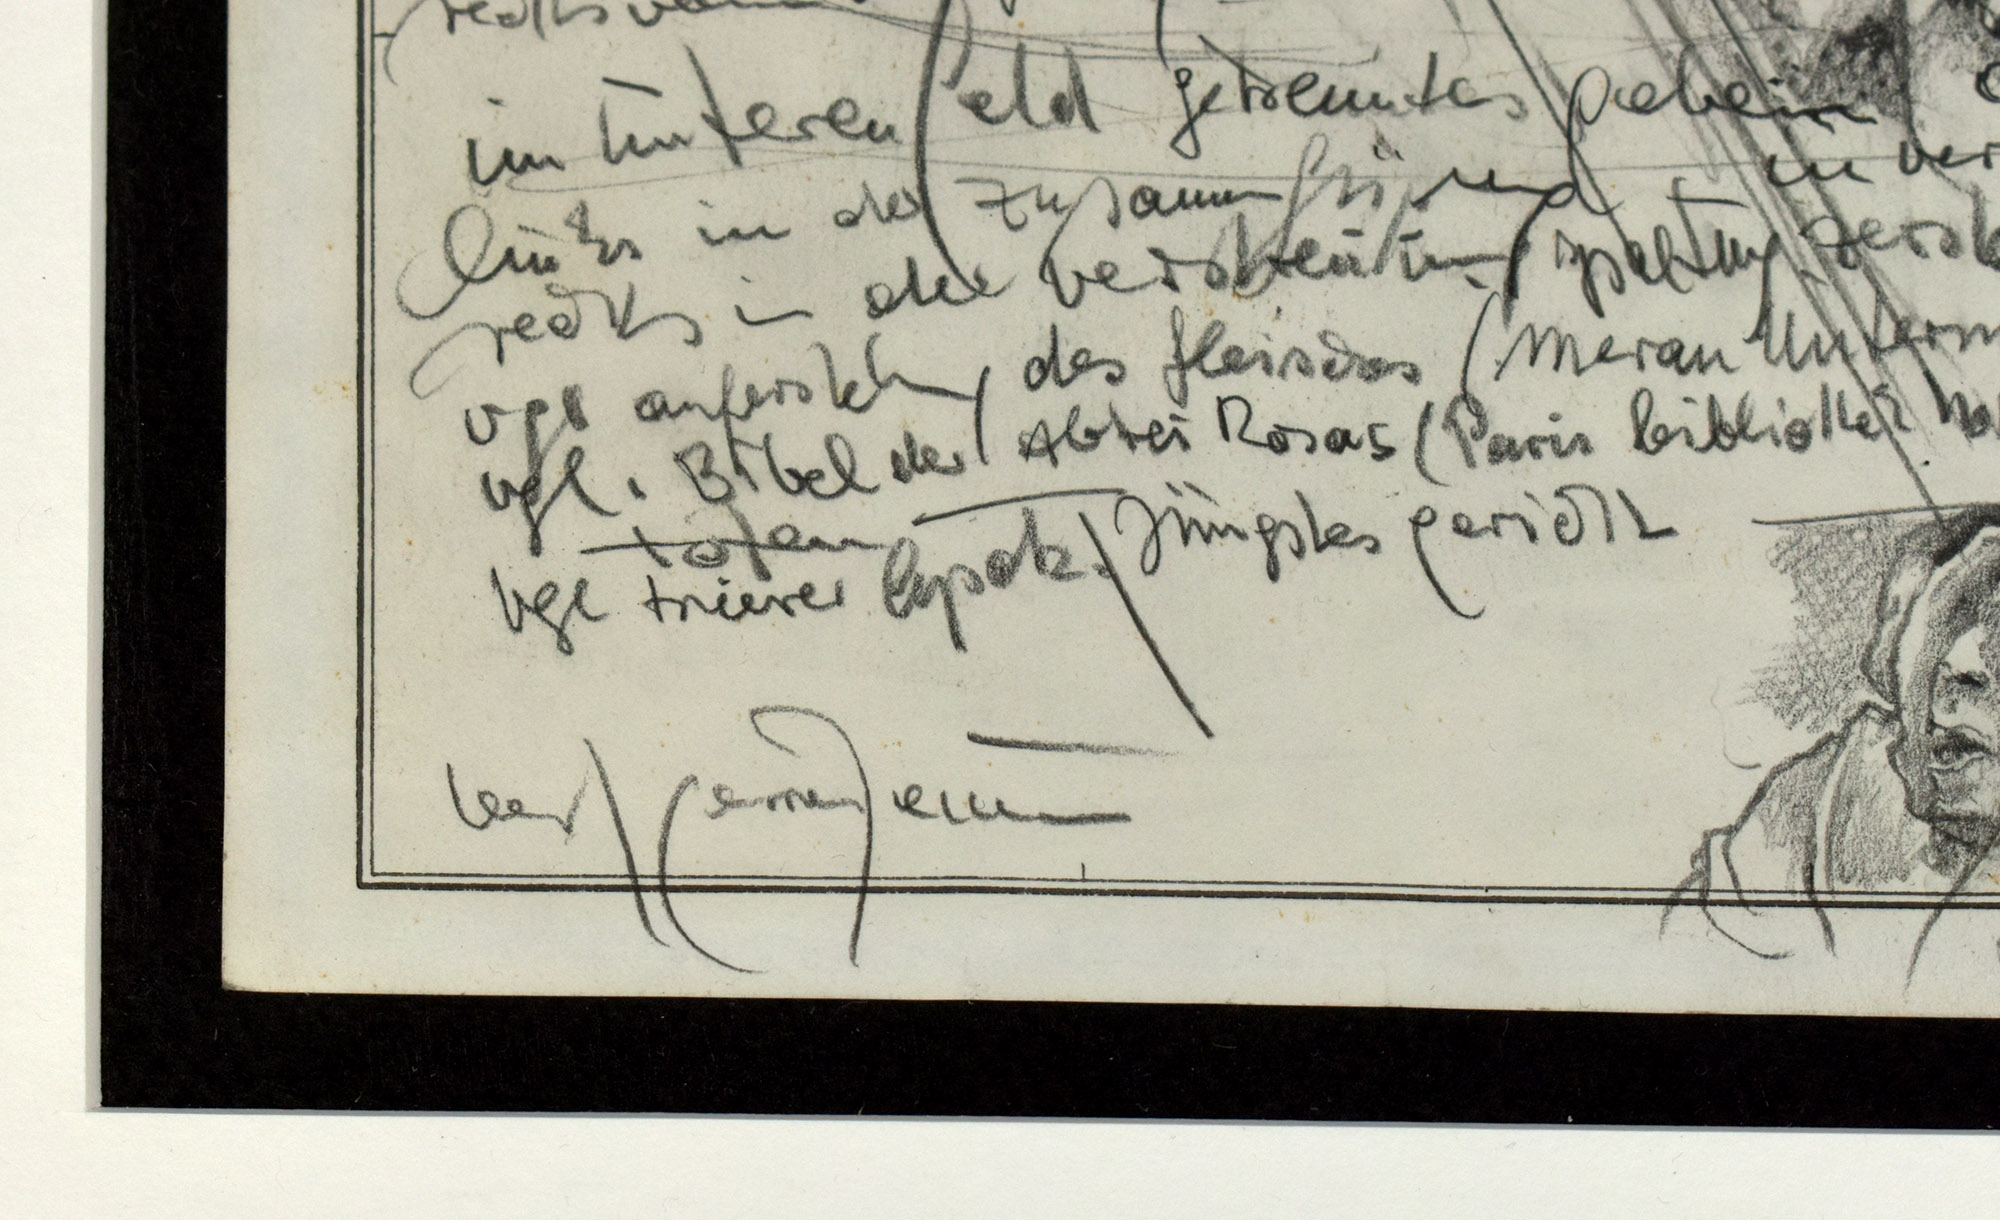 rechts von
im unteren feld getrenntes gebein
links in der zusammfügung in ver
rechts in der verstreuung spaltung zerst
vgl auferstehung des fleisches (Meran Unterm
vgl. Bibel der Abtei Rosas (Paris bibliothek
toten
vgl trierer Apok. Jüngstes gericht